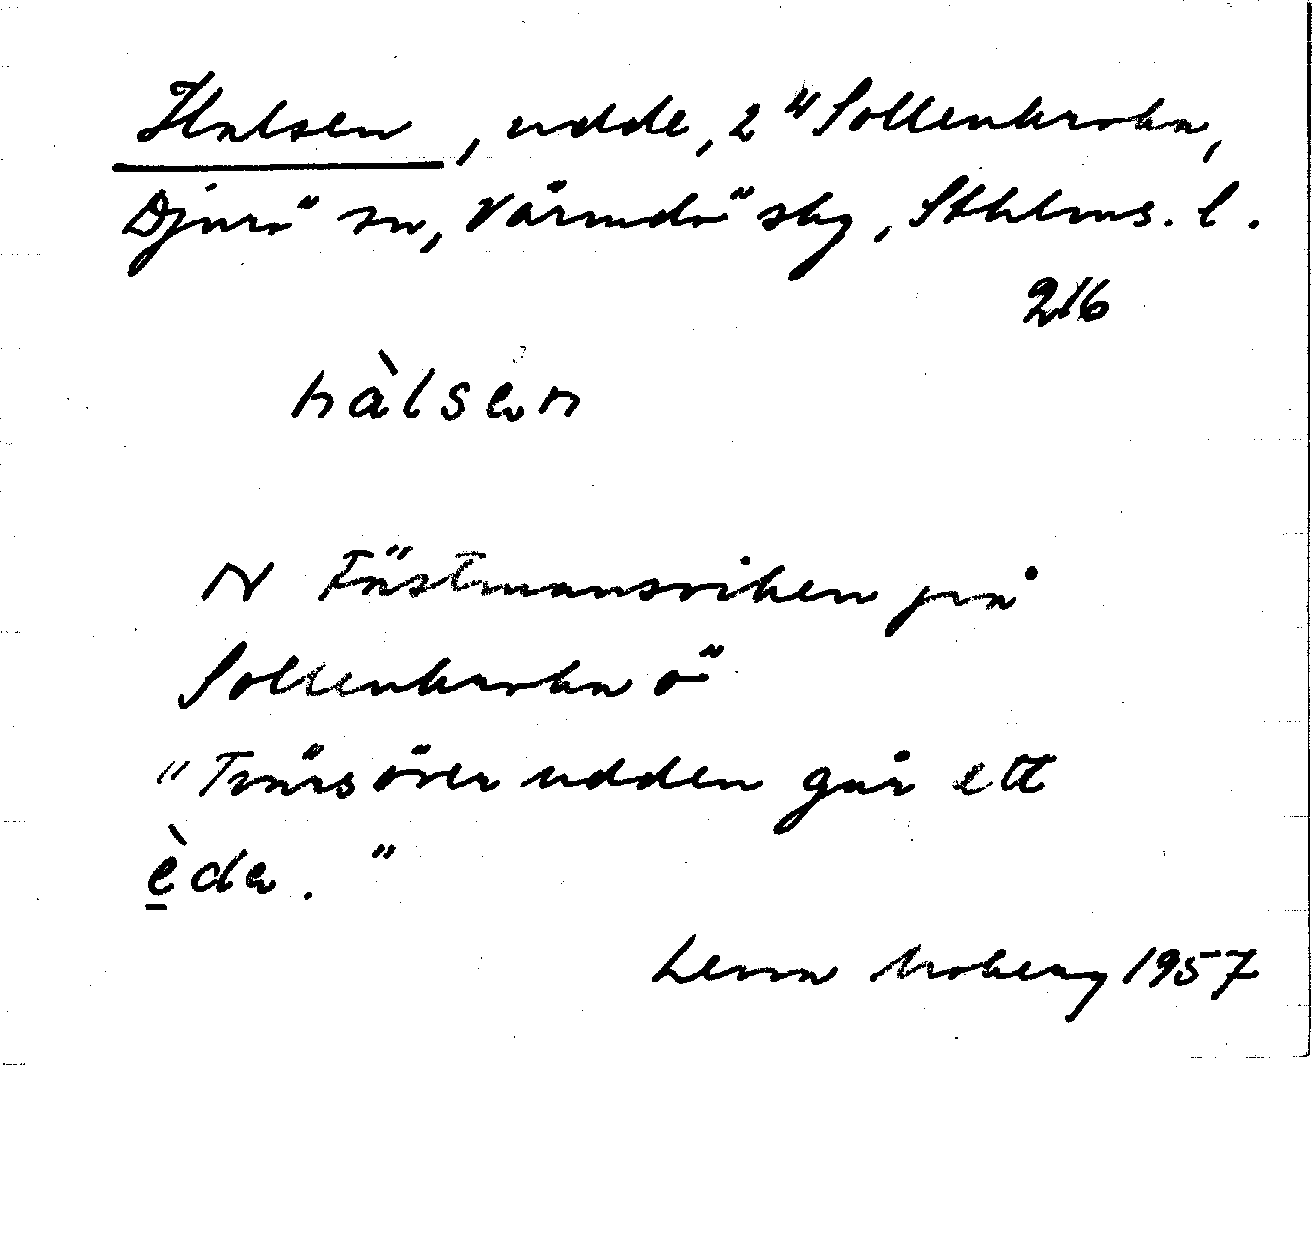 Halsen, udde, 2⁴ Sollenkroka,
Djurö sn, Värmdö skg, Sthlms. l.
216
hàlsen
N Fästmansviken på
Sollenkroka ö
"Tvärs över udden går ett
ède."
Lena Moberg 1957